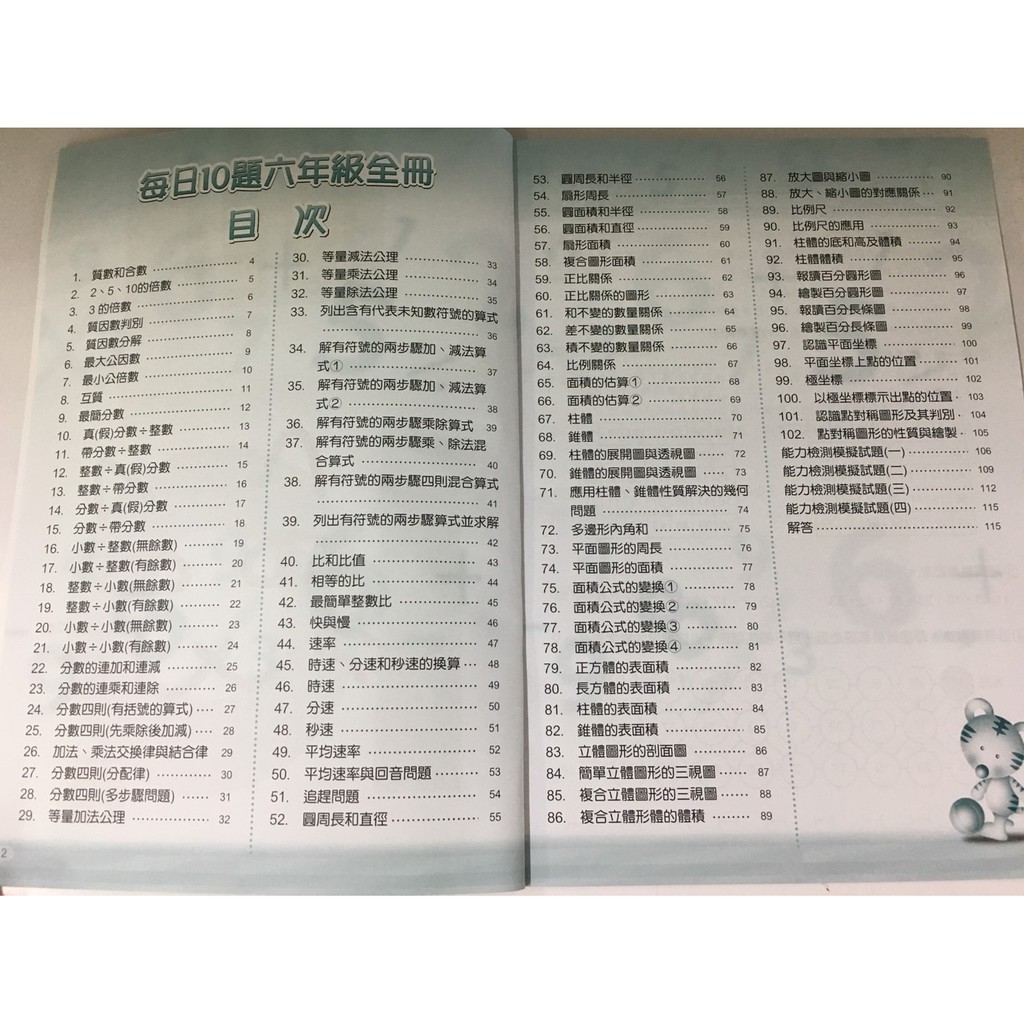 每日10題六年級全冊
目 次
1. 質數和合數 ………………… 4
2. 2、5、10的倍數 ………… 5
3. 3 的倍數 ………………… 6
4. 質因數判別 ……………… 7
5. 質因數分解 ……………… 8
6. 最大公因數 ……………… 9
7. 最小公倍數 ……………… 10
8. 互質 ……………………… 11
9. 最簡分數 ………………… 12
10. 真(假)分數÷整數 ……… 13
11. 帶分數÷整數 …………… 14
12. 整數÷真(假)分數 ……… 15
13. 整數÷帶分數 …………… 16
14. 分數÷真(假)分數 ……… 17
15. 分數÷帶分數 …………… 18
16. 小數÷整數(無餘數) …… 19
17. 小數÷整數(有餘數) …… 20
18. 整數÷小數(無餘數) …… 21
19. 整數÷小數(有餘數) …… 22
20. 小數÷小數(無餘數) …… 23
21. 小數÷小數(有餘數) …… 24
22. 分數的連加和連減 ……… 25
23. 分數的連乘和連除 ……… 26
24. 分數四則(有括號的算式)… 27
25. 分數四則(先乘除後加減)… 28
26. 加法、乘法交換律與結合律 29
27. 分數四則(分配律) ……… 30
28. 分數四則(多步驟問題) … 31
29. 等量加法公理 …………… 32
2
30. 等量減法公理 …………… 33
31. 等量乘法公理 …………… 34
32. 等量除法公理 …………… 35
33. 列出含有代表未知數符號的算式
………………………… 36
34. 解有符號的兩步驟加、減法算
式① …………………… 37
35. 解有符號的兩步驟加、減法算
式② …………………… 38
36. 解有符號的兩步驟乘除算式 39
37. 解有符號的兩步驟乘、除法混
合算式 ………………… 40
38. 解有符號的兩步驟四則混合算式
………………………… 41
39. 列出有符號的兩步驟算式並求解
………………………… 42
40. 比和比值 ………………… 43
41. 相等的比 ………………… 44
42. 最簡單整數比 …………… 45
43. 快與慢 …………………… 46
44. 速率 ……………………… 47
45. 時速、分速和秒速的換算… 48
46. 時速 ……………………… 49
47. 分速 ……………………… 50
48. 秒速 ……………………… 51
49. 平均速率 ………………… 52
50. 平均速率與回音問題 …… 53
51. 追趕問題 ………………… 54
52. 圓周長和直徑 …………… 55
53. 圓周長和半徑 …………… 56
54. 扇形周長 ………………… 57
55. 圓面積和半徑 …………… 58
56. 圓面積和直徑 …………… 59
57. 扇形面積 ………………… 60
58. 複合圖形面積 …………… 61
59. 正比關係 ………………… 62
60. 正比關係的圖形 ………… 63
61. 和不變的數量關係 ……… 64
62. 差不變的數量關係 ……… 65
63. 積不變的數量關係 ……… 66
64. 比例關係 ………………… 67
65. 面積的估算① …………… 68
66. 面積的估算② …………… 69
67. 柱體 ……………………… 70
68. 錐體 ……………………… 71
69. 柱體的展開圖與透視圖 … 72
70. 錐體的展開圖與透視圖 … 73
71. 應用柱體、錐體性質解決的幾何
問題 …………………… 74
72. 多邊形內角和 …………… 75
73. 平面圖形的周長 ………… 76
74. 平面圖形的面積 ………… 77
75. 面積公式的變換① ……… 78
76. 面積公式的變換② ……… 79
77. 面積公式的變換③ ……… 80
78. 面積公式的變換④ ……… 81
79. 正方體的表面積 ………… 82
80. 長方體的表面積 ………… 83
81. 柱體的表面積 …………… 84
82. 錐體的表面積 …………… 85
83. 立體圖形的剖面圖 ……… 86
84. 簡單立體圖形的三視圖 … 87
85. 複合立體圖形的三視圖 … 88
86. 複合立體形體的體積 …… 89
87. 放大圖與縮小圖 ………… 90
88. 放大、縮小圖的對應關係… 91
89. 比例尺 …………………… 92
90. 比例尺的應用 …………… 93
91. 柱體的底和高及體積 …… 94
92. 柱體體積 ………………… 95
93. 報讀百分圓形圖 ………… 96
94. 繪製百分圓形圖 ………… 97
95. 報讀百分長條圖 ………… 98
96. 繪製百分長條圖 ………… 99
97. 認識平面坐標 …………… 100
98. 平面坐標上點的位置 …… 101
99. 極坐標 …………………… 102
100. 以極坐標標示出點的位置· 103
101. 認識點對稱圖形及其判別· 104
102. 點對稱圖形的性質與繪製· 105
能力檢測模擬試題(一) …… 106
能力檢測模擬試題(二) …… 109
能力檢測模擬試題(三) …… 112
能力檢測模擬試題(四) …… 115
解答 ………………………… 115